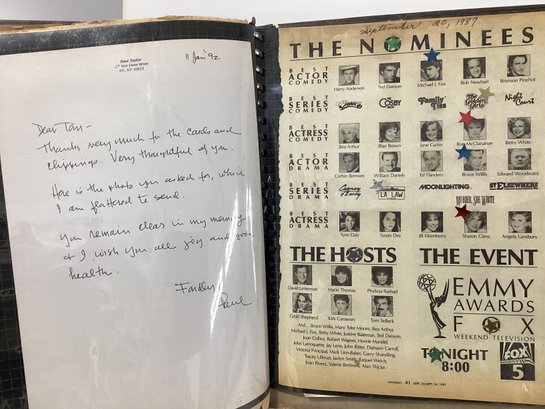 Paul Taylor
NY, NY 10013
Jan '92
Dear
Thanks very much for the cards and
clippings. Very thoughtful of you.
Here is the photo you asked for, which
I am flattered to send.
You remain clear in my memory
& I wish you all joy and good
health.
Fondly
Paul
September 20, 1987
THE NOMINEES
BEST
ACTOR
COMEDY
Harry Anderson Ted Danson Michael J. Fox Bob Newhart Bronson Pinchot
BEST
SERIES
COMEDY
Cheers The COSBY Family Ties The Golden Girls Night Court
BEST
ACTRESS
COMEDY
Bea Arthur Blair Brown Jane Curtin Rue McClanahan Betty White
BEST
ACTOR
DRAMA
Corbin Bernsen William Daniels Ed Flanders Bruce Willis Edward Woodward
BEST
SERIES
DRAMA
Cagney & Lacey L.A. LAW MOONLIGHTING. ST. ELSEWHERE
MURDER, SHE WROTE
BEST
ACTRESS
DRAMA
Tyne Daly Susan Dey Jill Eikenberry Sharon Gless Angela Lansbury
THE HOSTS
David Letterman Marlo Thomas Phylicia Rashad
Cybill Shepherd Kirk Cameron Tom Selleck
And... Bruce Willis, Mary Tyler Moore, Bea Arthur,
Michael J. Fox, Betty White, Justine Bateman, Ted Danson,
Joan Collins, Robert Wagner, Howie Mandel,
John Larroquette, Jay Leno, John Ritter, Diahann Carroll,
Victoria Principal, Mark Linn-Baker, Garry Shandling,
Tracey Ullman, Jaclyn Smith, Raquel Welch,
Joan Rivers, Valerie Bertinelli, Alan Thicke.
THE EVENT
EMMY
AWARDS
FOX
WEEKEND TELEVISION
TONIGHT
8:00
FOX
5
NEWSDAY 41 SEPT. 20-SEPT. 26, 1987